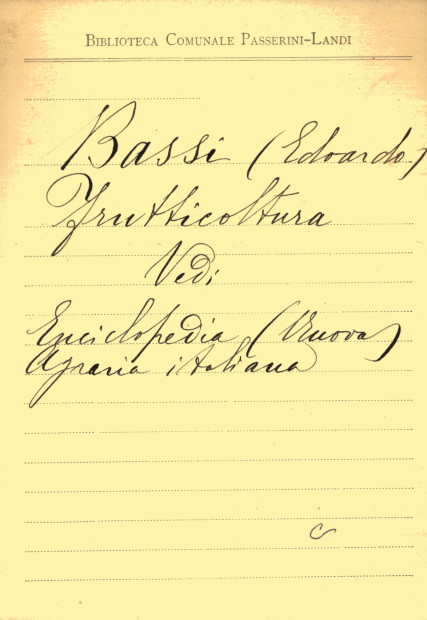 Biblioteca Comunale Passerini-Landi
Bassi (Edoardo)
Frutticoltura
Vedi
Enciclopedia (Nuova)
Agraria italiana
c